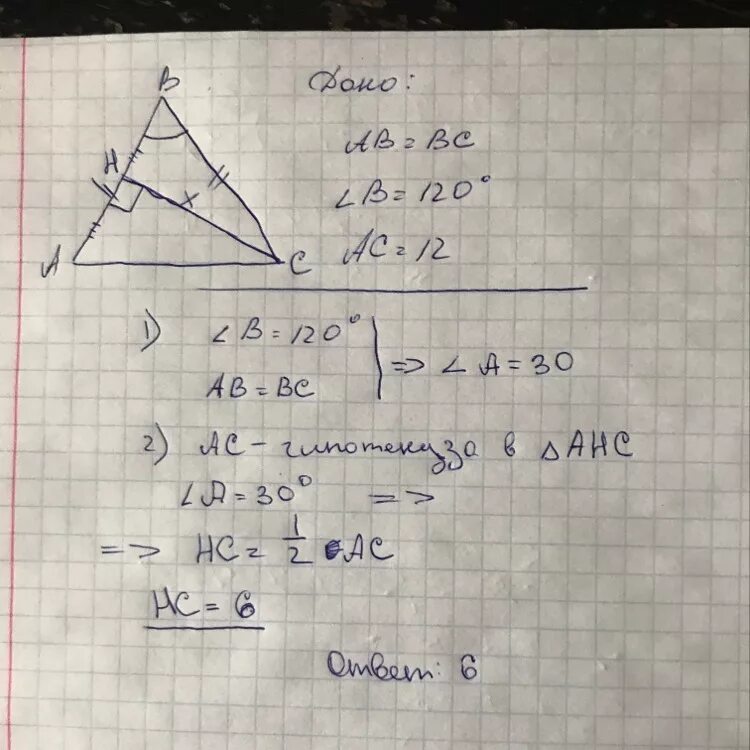 B
H
x
A
C
Дано:
AB = BC
∠B = 120°
AC = 12
1) ∠B = 120°
AB = BC
=> ∠A = 30
2) AC - гипотенуза в △AHC
∠A = 30° =>
=> HC = 1/2 • AC
HC = 6
Ответ: 6